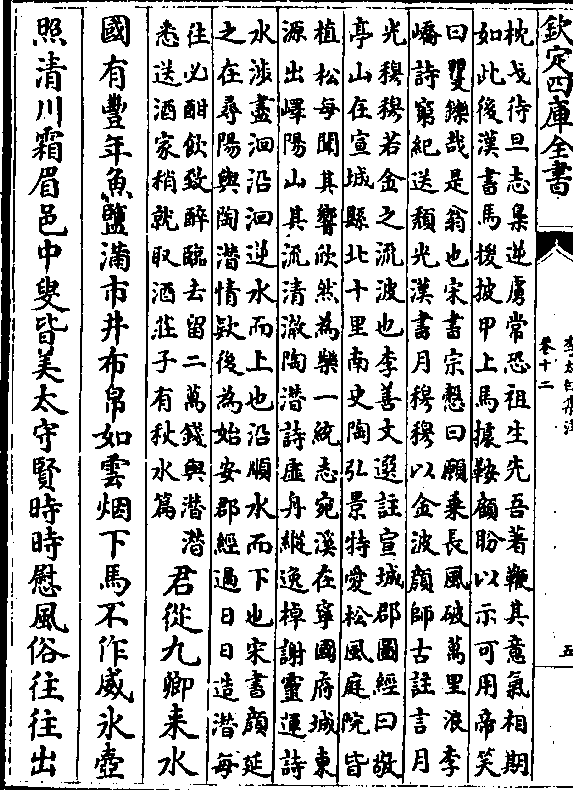 欽定四庫全書
李太白集注
卷十二
五
枕戈待旦志梟逆虜常恐祖生先吾著鞭其意氣相期
如此後漢書馬援披甲上馬據鞍顧盼以示可用帝笑
曰矍鑠哉是翁也宋書宗慤曰願乘長風破萬里浪李
嶠詩窮紀送頹光漢書月穆穆以金波顔師古註言月
光穆穆若金之流波也李善文選註宣城郡圖經曰敬
亭山在宣城縣北十里南史陶弘景特愛松風庭院皆
植松每聞其響欣然為樂一統志宛溪在寧國府城東
源出嶧陽山其流清澈陶潛詩虛舟縱逸棹謝靈運詩
水涉盡洄沿洄逆水而上也沿順水而下也宋書顔延
之在尋陽與陶潛情欵後為始安郡經過日日造潛每
往必酣飲致醉臨去留二萬錢與潛潛
悉送酒家稍就取酒莊子有秋水篇
君從九卿来水
國有豐年魚鹽滿市井布帛如雲烟下馬不作威氷壺
照清川霜眉邑中叟皆美太守賢時時慰風俗往往出